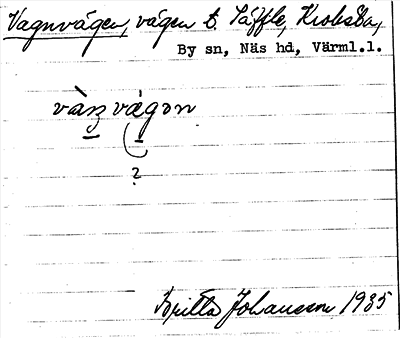 Vagnvägen, vägen t. Säffle, Krokstad,
By sn, Näs hd, Värml.l.
vàŋvägən
?
Britta Johansson 1935